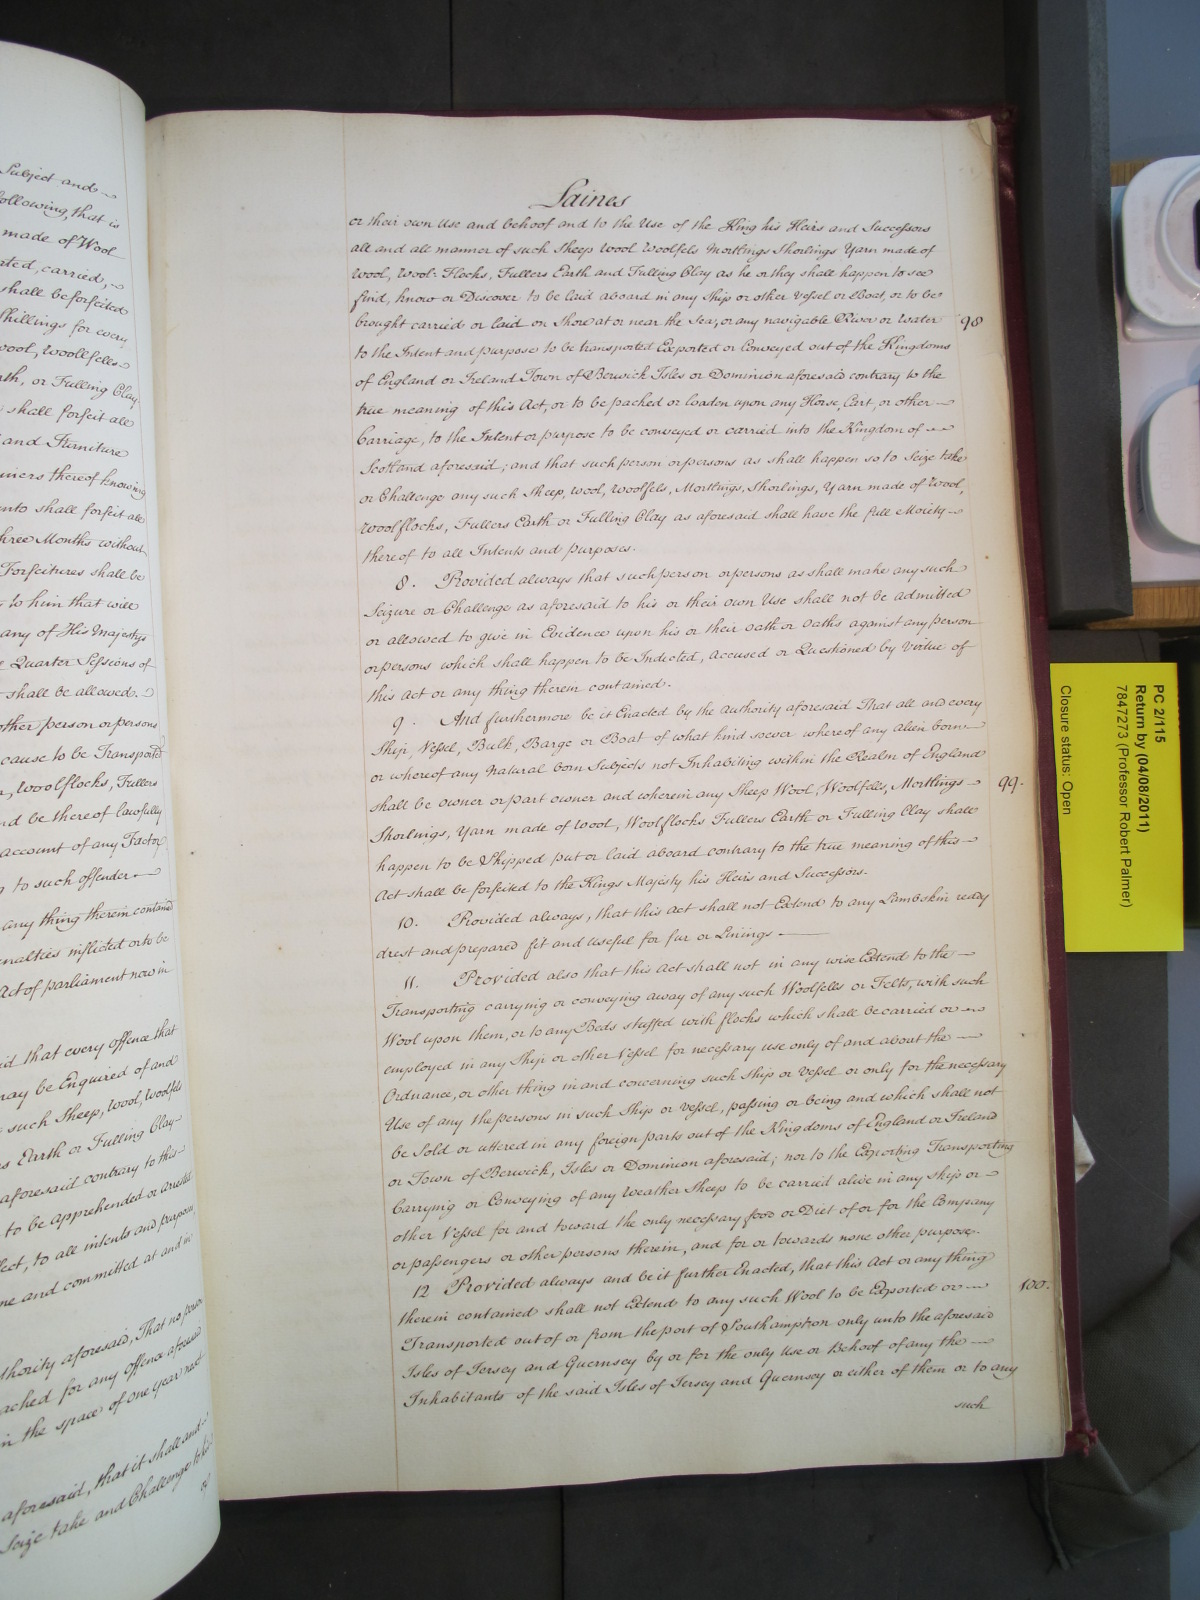 Subject and
following, that is
made of Wool
ated, carried,
shall be forfeited
Shillings for every
wool, woollfells
th, or Fulling Clay
shall forfeit all
and Furniture
iners thereof knowing
nto shall forfeit all
hree Months without
Forfeitures shall be
to him that will
any of His Majestys
Quarter Sessions of
shall be allowed.
other person or persons
cause to be Transported
, Woolflocks, Fullers
nd be thereof lawfully
account of any Factor
g to such offender
any thing therein contained
enalties inflicted or to be
Act of parliament now in
id that every offence that
may be Enquired of and
such Sheep, Wool, Woolfels
s Earth or Fulling Clay
aforesaid contrary to this
to be apprehended or arrested
ect, to all intents and purposes
ne and committed at and in
thority aforesaid, That no person
ached for any offence aforesaid
in the space of one year next
aforesaid, that it shall and
Seize take and Challenge to his
or
Saines
or their own Use and behoof and to the Use of the King his Heirs and Successors
all and all manner of such Sheep Wool Woolfels Mortlings Shorlings Yarn made of
Wool, Wool-Flocks, Fullers Earth and Fulling Clay as he or they shall happen to see
find, know or Discover to be laid aboard in any Ship or other Vessel or Boat, or to be
brought carried or laid on Shore at or near the Sea, or any navigable River or Water 98
to the Intent and purpose to be transported Exported or Conveyed out of the Kingdoms
of England or Ireland Town of Berwick Isles or Dominion aforesaid contrary to the
true meaning of this Act, or to be packed or loaden upon any Horse, Cart, or other
Carriage, to the Intent or purpose to be conveyed or carried into the Kingdom of
Scotland aforesaid; and that such person or persons as shall happen so to Seize take
or Challenge any such Sheep, Wool, Woolfels, Mortlings, Shorlings, Yarn made of Wool,
Woolflocks, Fullers Earth or Fulling Clay as aforesaid shall have the full Moiety
thereof to all Intents and purposes.
8. Provided always that such person or persons as shall make any such
Seizure or Challenge as aforesaid to his or their own Use shall not be admitted
or allowed to give in Evidence upon his or their oath or oaths against any person
or persons which shall happen to be Indicted, accused or Questioned by virtue of
this act or any thing therein contained.
9. And furthermore be it Enacted by the authority aforesaid That all and every
Ship, Vessel, Bulk, Barge or Boat of what kind soever whereof any alien born
or whereof any Natural born Subjects not Inhabiting within the Realm of England
shall be owner or part owner and wherein any Sheep Wool, Woolfells, Mortlings 99.
Shorlings, Yarn made of Wool, Woolflocks Fullers Earth or Fulling Clay shall
happen to be Shipped put or laid aboard contrary to the true meaning of this
Act shall be forfeited to the Kings Majesty his Heirs and Successors.
10. Provided always, that this Act shall not Extend to any Lambskin ready
drest and prepared fit and useful for fur or Linings
11. Provided also that this Act shall not in any wise Extend to the
Transporting carrying or conveying away of any such Woolfells or Felts, with such
Wool upon them, or to any Beds stuffed with flocks which shall be carried or
employed in any Ship or other Vessel for necessary use only of and about the
Ordnance, or other thing in and concerning such Ship or Vessel or only for the necessary
Use of any the persons in such Ship or Vessel, passing or being and which shall not
be Sold or uttered in any foreign parts out of the Kingdoms of England or Ireland
or Town of Berwick, Isles or Dominion aforesaid; nor to the Exporting Transporting
Carrying or Conveying of any Weather Sheep to be carried alive in any ship or
other Vessel for and toward the only necessary food or Diet of or for the Company
or passengers or other persons therein, and for or towards none other purpose.
12 Provided always and be it further Enacted, that this Act or any thing 100.
therein contained shall not Extend to any such Wool to be Exported or
Transported out of or from the port of Southampton only unto the aforesaid
Isles of Jersey and Guernsey by or for the only Use or Behoof of any the
Inhabitants of the said Isles of Jersey and Guernsey or either of them or to any
such
PC 2/115
Return by (04/08/2011)
7847273 (Professor Robert Palmer)
Closure status: Open